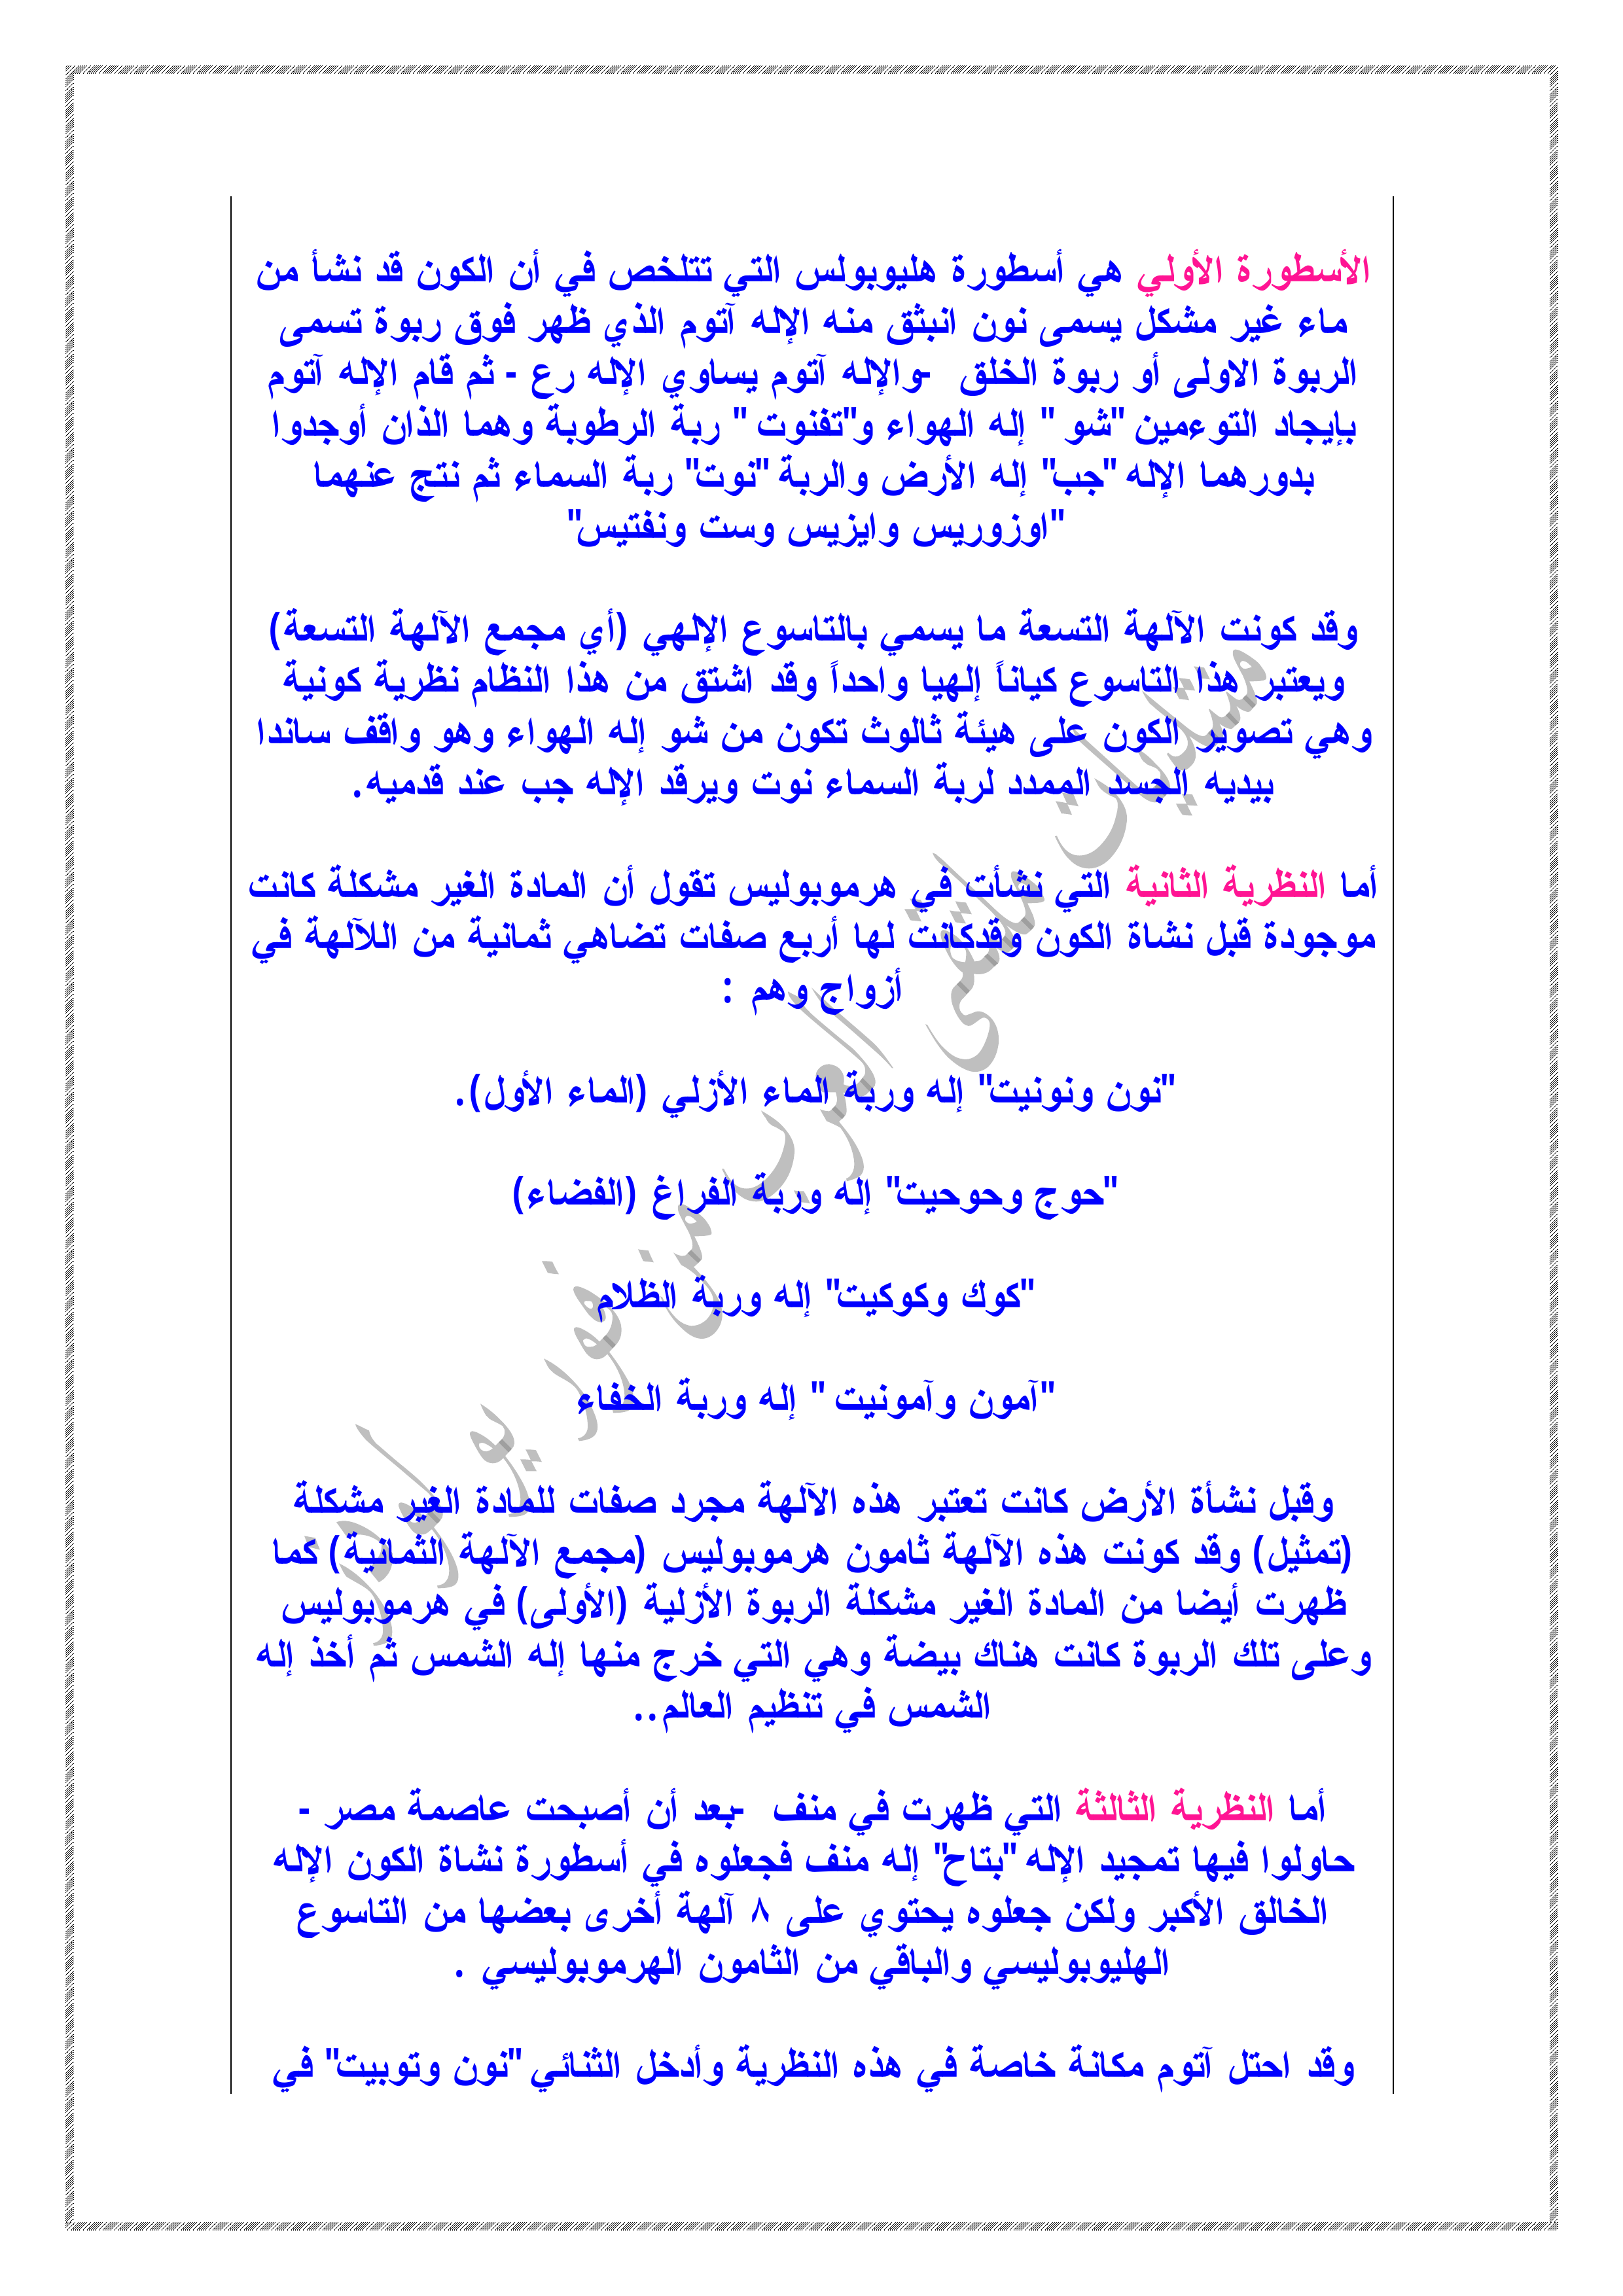 الأسطورة الأولي هي أسطورة هليوبولس التي تتلخص في أن الكون قد نشأ من
ماء غير مشكل يسمى نون انبثق منه الإله آتوم الذي ظهر فوق ربوة تسمى
الربوة الاولى أو ربوة الخلق -والإله آتوم يساوي الإله رع - ثم قام الإله آتوم
بإيجاد التوءمين "شو" إله الهواء و"تفنوت" ربة الرطوبة وهما الذان أوجدوا
بدورهما الإله "جب" إله الأرض والربة "نوت" ربة السماء ثم نتج عنهما
"اوزوريس وايزيس وست ونفتيس"
وقد كونت الآلهة التسعة ما يسمي بالتاسوع الإلهي (أي مجمع الآلهة التسعة)
ويعتبر هذا التاسوع كياناً إلهيا واحداً وقد اشتق من هذا النظام نظرية كونية
وهي تصوير الكون على هيئة ثالوث تكون من شو إله الهواء وهو واقف ساندا
بيديه الجسد الممدد لربة السماء نوت ويرقد الإله جب عند قدميه.
أما النظرية الثانية التي نشأت في هرموبوليس تقول أن المادة الغير مشكلة كانت
موجودة قبل نشاة الكون وقدكانت لها أربع صفات تضاهي ثمانية من اللآلهة في
أزواج وهم :
"نون ونونيت" إله وربة الماء الأزلي (الماء الأول).
"حوج وحوحيت" إله وربة الفراغ (الفضاء)
"كوك وكوكيت" إله وربة الظلام
"آمون وآمونيت" إله وربة الخفاء
وقبل نشأة الأرض كانت تعتبر هذه الآلهة مجرد صفات للمادة الغير مشكلة
(تمثيل) وقد كونت هذه الآلهة ثامون هرموبوليس (مجمع الآلهة الثمانية) كما
ظهرت أيضا من المادة الغير مشكلة الربوة الأزلية (الأولى) في هرموبوليس
وعلى تلك الربوة كانت هناك بيضة وهي التي خرج منها إله الشمس ثم أخذ إله
الشمس في تنظيم العالم..
أما النظرية الثالثة التي ظهرت في منف -بعد أن أصبحت عاصمة مصر -
حاولوا فيها تمجيد الإله "بتاح" إله منف فجعلوه في أسطورة نشاة الكون الإله
الخالق الأكبر ولكن جعلوه يحتوي على ٨ آلهة أخرى بعضها من التاسوع
الهليوبوليسي والباقي من الثامون الهرموبوليسي .
وقد احتل آتوم مكانة خاصة في هذه النظرية وأدخل الثنائي "نون وتوبيت" في
منتديات ملتقى العرب من فور يو لوز